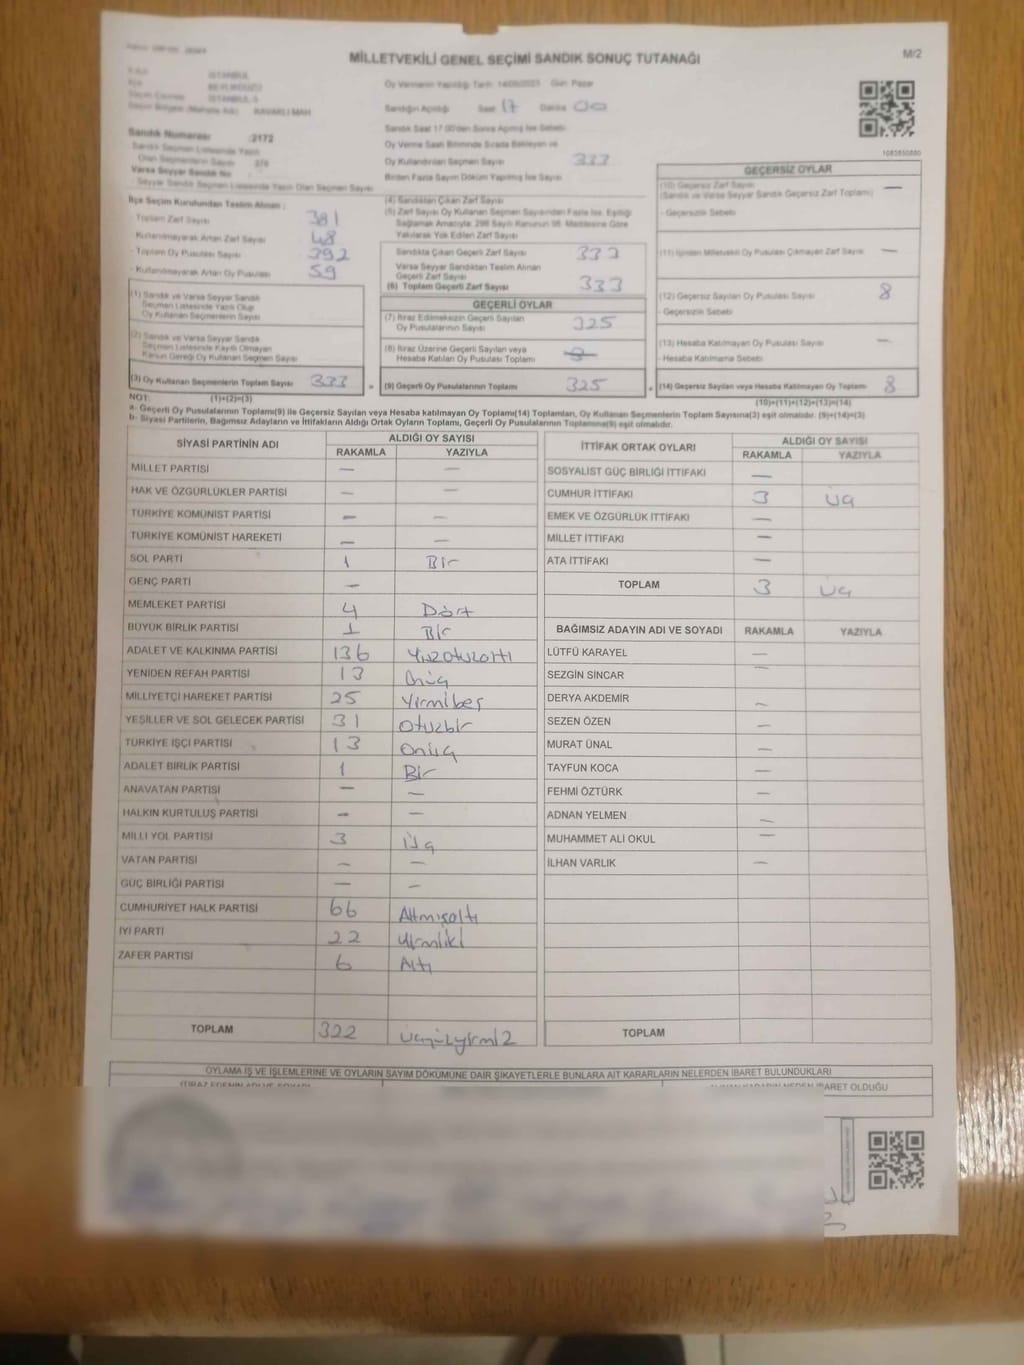 MİLLETVEKİLİ GENEL SEÇİMİ SANDIK SONUÇ TUTANAĞI
M/2
İSTANBUL
Oy Vermenin Yapıldığı Tarih: 14/05/2023 Gün Pazar
Sandığın Açıldığı Saat 17 Dakika 00
KAVAKLI MAH
Sandık Numarası :2172
Sandık Saat 17.00'den Sonra Açılmış İse Sebebi
Oy Verme Saati Bitiminde Sırada Bekleyen ve
Oy Kullandırılan Seçmen Sayısı 333
Birden Fazla Sayım Döküm Yapılmış İse Sayısı
Sandık Seçmen Listesinde Yazılı
Olan Seçmenlerin Sayısı
Varsa Seyyar Sandık No
Seyyar Sandık Seçmen Listesinde Yazılı Olan Seçmen Sayısı
1083850880
İlçe Seçim Kurulundan Teslim Alınan :
- Toplam Zarf Sayısı 381
- Kullanılmayarak Artan Zarf Sayısı 48
- Toplam Oy Pusulası Sayısı 392
- Kullanılmayarak Artan Oy Pusulası 59
(1) Sandık ve Varsa Seyyar Sandık
Seçmen Listesinde Yazılı Olup
Oy Kullanan Seçmenlerin Sayısı
(2) Sandık ve Varsa Seyyar Sandık
Seçmen Listesinde Kayıtlı Olmayan
Kanun Gereği Oy Kullanan Seçmen Sayısı
(3) Oy Kullanan Seçmenlerin Toplam Sayısı 333
(4) Sandıktan Çıkan Zarf Sayısı
(5) Zarf Sayısı Oy Kullanan Seçmen Sayısından Fazla İse, Eşitliği
Sağlamak Amacıyla, 298 Sayılı Kanunun 98. Maddesine Göre
Yakılarak Yok Edilen Zarf Sayısı
Sandıkta Çıkan Geçerli Zarf Sayısı 333
Varsa Seyyar Sandıktan Teslim Alınan
Geçerli Zarf Sayısı
(6) Toplam Geçerli Zarf Sayısı 333
GEÇERLİ OYLAR
(7) İtiraz Edilmeksizin Geçerli Sayılan
Oy Pusulalarının Sayısı 325
(8) İtiraz Üzerine Geçerli Sayılan veya
Hesaba Katılan Oy Pusulası Toplamı
= (9) Geçerli Oy Pusulalarının Toplamı 325
GEÇERSİZ OYLAR
(10) Geçersiz Zarf Sayısı —
(Sandık ve Varsa Seyyar Sandık Geçersiz Zarf Toplamı)
- Geçersizlik Sebebi
(11) İçinden Milletvekili Oy Pusulası Çıkmayan Zarf Sayısı —
(12) Geçersiz Sayılan Oy Pusulası Sayısı 8
- Geçersizlik Sebebi
(13) Hesaba Katılmayan Oy Pusulası Sayısı —
- Hesaba Katılmama Sebebi
+ (14) Geçersiz Sayılan veya Hesaba Katılmayan Oy Toplamı 8
NOT: (1)+(2)=(3)
(10)+(11)+(12)+(13)=(14)
a- Geçerli Oy Pusulaları Toplamı(9) ile Geçersiz Sayılan veya Hesaba katılmayan Oy Toplamı(14) Toplamları, Oy Kullanan Seçmenlerin Toplam Sayısına(3) eşit olmalıdır. (9)+(14)=(3)
b- Siyasi Partilerin, Bağımsız Adayların ve İttifakların Aldığı Ortak Oyların Toplamı, Geçerli Oy Pusulalarının Toplamına(9) eşit olmalıdır.
SİYASİ PARTİNİN ADI ALDIĞI OY SAYISI
RAKAMLA YAZIYLA
MİLLET PARTİSİ — —
HAK VE ÖZGÜRLÜKLER PARTİSİ — —
TÜRKİYE KOMÜNİST PARTİSİ — —
TÜRKİYE KOMÜNİST HAREKETİ — —
SOL PARTİ 1 Bir
GENÇ PARTİ —
MEMLEKET PARTİSİ 4 Dört
BÜYÜK BİRLİK PARTİSİ 1 Bir
ADALET VE KALKINMA PARTİSİ 136 Yüzotuzaltı
YENİDEN REFAH PARTİSİ 13 Onüç
MİLLİYETÇİ HAREKET PARTİSİ 25 Yirmibeş
YEŞİLLER VE SOL GELECEK PARTİSİ 31 Otuzbir
TÜRKİYE İŞÇİ PARTİSİ 13 Onüç
ADALET BİRLİK PARTİSİ 1 Bir
ANAVATAN PARTİSİ — —
HALKIN KURTULUŞ PARTİSİ — —
MİLLİ YOL PARTİSİ 3 Üç
VATAN PARTİSİ — —
GÜÇ BİRLİĞİ PARTİSİ — —
CUMHURİYET HALK PARTİSİ 66 Altmışaltı
İYİ PARTİ 22 Yirmiiki
ZAFER PARTİSİ 6 Altı
TOPLAM 322 Üçyüzyirmi2
İTTİFAK ORTAK OYLARI ALDIĞI OY SAYISI
RAKAMLA YAZIYLA
SOSYALİST GÜÇ BİRLİĞİ İTTİFAKI —
CUMHUR İTTİFAKI 3 Üç
EMEK VE ÖZGÜRLÜK İTTİFAKI —
MİLLET İTTİFAKI —
ATA İTTİFAKI —
TOPLAM 3 Üç
BAĞIMSIZ ADAYIN ADI VE SOYADI RAKAMLA YAZIYLA
LÜTFÜ KARAYEL —
SEZGİN SİNCAR —
DERYA AKDEMİR —
SEZEN ÖZEN —
MURAT ÜNAL —
TAYFUN KOCA —
FEHMİ ÖZTÜRK —
ADNAN YELMEN —
MUHAMMET ALİ OKUL —
İLHAN VARLIK —
TOPLAM
OYLAMA İŞ VE İŞLEMLERİNE VE OYLARIN SAYIM DÖKÜMÜNE DAİR ŞİKAYETLERLE BUNLARA AİT KARARLARIN NELERDEN İBARET BULUNDUKLARI
İTİRAZ EDENİN ADI VE SOYADI
İBARET OLDUĞU